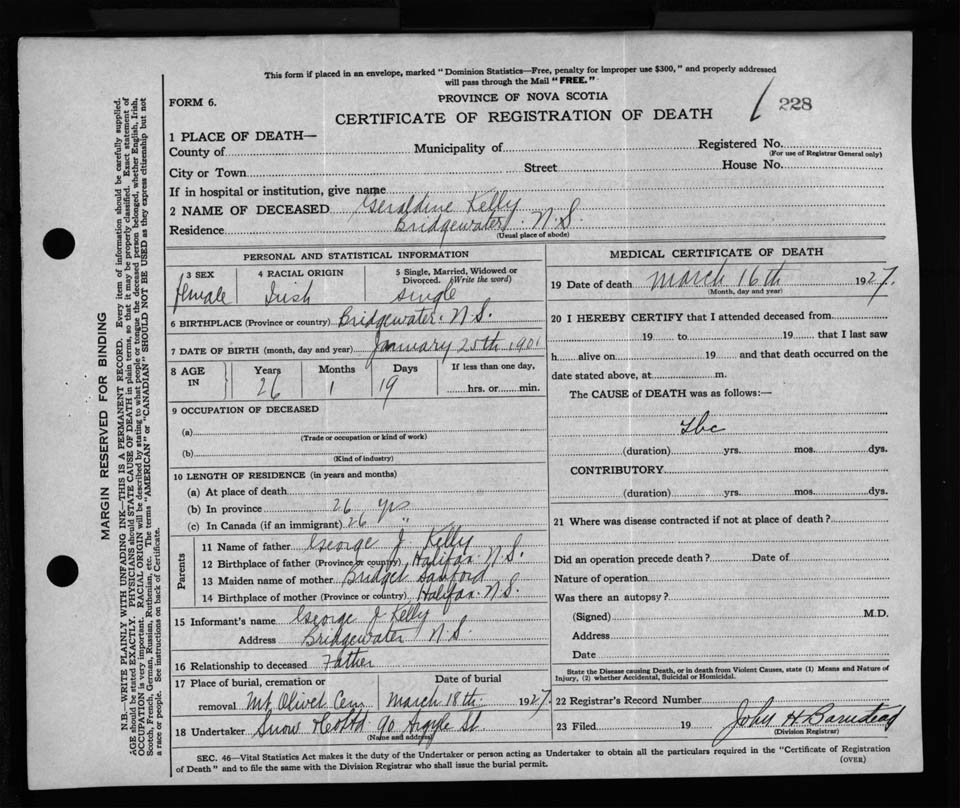 This form if placed in an envelope, marked "Dominion Statistics—Free, penalty for improper use $300," and properly addressed
will pass through the Mail "FREE."
FORM 6.
PROVINCE OF NOVA SCOTIA
228
CERTIFICATE OF REGISTRATION OF DEATH
1 PLACE OF DEATH—
County of
Municipality of
Registered No.
(For use of Registrar General only)
City or Town
Street
House No.
If in hospital or institution, give name
2 NAME OF DECEASED Geraldine Kelly
Residence Bridgewater, N.S.
(Usual place of abode)
PERSONAL AND STATISTICAL INFORMATION
3 SEX
4 RACIAL ORIGIN
5 Single, Married, Widowed or
Divorced. (Write the word)
female Irish single
6 BIRTHPLACE (Province or country) Bridgewater. N.S.
7 DATE OF BIRTH (month, day and year) January 25th 1901
8 AGE
IN
Years
Months
Days
If less than one day,
26 1 19
hrs. or min.
9 OCCUPATION OF DECEASED
(a)
(Trade or occupation or kind of work)
(b)
(Kind of industry)
10 LENGTH OF RESIDENCE (in years and months)
(a) At place of death
(b) In province 26 yrs
(c) In Canada (if an immigrant) 26 "
Parents
11 Name of father George J. Kelly
12 Birthplace of father (Province or country) Halifax N.S.
13 Maiden name of mother Bridget Sanford
14 Birthplace of mother (Province or country) Halifax. N.S.
15 Informant's name George J Kelly
Address Bridgewater N.S.
16 Relationship to deceased Father
17 Place of burial, cremation or
Date of burial
removal Mt Olivet Cem March 18th 1927.
18 Undertaker Snow & Co Ltd 90 Argyle St
(Name and address)
MEDICAL CERTIFICATE OF DEATH
19 Date of death March 16th 1927.
(Month, day and year)
20 I HEREBY CERTIFY that I attended deceased from
19 to 19 that I last saw
h alive on 19 and that death occurred on the
date stated above, at m.
The CAUSE of DEATH was as follows:—
Tbc
(duration) yrs. mos. dys.
CONTRIBUTORY
(duration) yrs. mos. dys.
21 Where was disease contracted if not at place of death?
Did an operation precede death? Date of
Nature of operation
Was there an autopsy?
(Signed) M.D.
Address
Date
State the Disease causing Death, or in death from Violent Causes, state (1) Means and Nature of
Injury, (2) whether Accidental, Suicidal or Homicidal.
22 Registrar's Record Number
23 Filed 19 John H Barnstead
(Division Registrar)
SEC. 46—Vital Statistics Act makes it the duty of the Undertaker or person acting as Undertaker to obtain all the particulars required in the "Certificate of Registration
of Death" and to file the same with the Division Registrar who shall issue the burial permit.
(OVER)
MARGIN RESERVED FOR BINDING
N.B.—WRITE PLAINLY WITH UNFADING INK—THIS IS A PERMANENT RECORD. Every item of information should be carefully supplied.
AGE should be stated EXACTLY. PHYSICIANS should STATE CAUSE OF DEATH in plain terms, so that it may be properly classified. Exact statement of
OCCUPATION is very important. RACIAL ORIGIN will be described by stating to what people or tongue the deceased person belonged, whether English, Irish,
Scotch, French, German, Russian, Ruthenian, etc. The terms "AMERICAN" or "CANADIAN" SHOULD NOT BE USED as they express citizenship but not
a race or people. See instructions on back of Certificate.